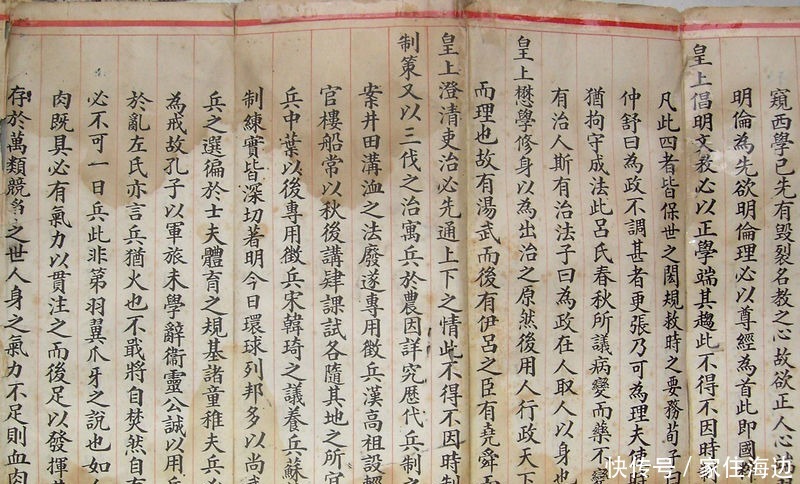 窺西學已先有毀裂名教之心故欲正人心
明倫為先欲明倫理必以尊經為首此即國
皇上倡明文教必以正學端其趨此不得不因時
凡此四者皆保世之閎規救時之要務荀子曰
仲舒曰為政不調甚者更張乃可為理夫使
猶拘守成法此呂氏春秋所議病變而藥不變
有治人斯有治法子曰為政在人取人以身也
皇上懋學修身以為出治之原然後用人行政天下
而理也故有湯武而後有伊呂之臣有堯舜而
皇上澄清吏治必先通上下之情此不得不因時制
制策又以三代之治寓兵於農因詳究歷代兵制之
案井田溝洫之法廢遂專用徵兵漢高祖設輕
官樓船常以秋後講肄課試各隨其地之所宜
兵中葉以後專用徵兵宋韓琦之議養兵蘇
制練實皆深切著明今日環球列邦多以尚武
兵之選徧於士夫體育之規基諸童稚夫兵
為戒故孔子以軍旅未學辭衞靈公誠以用兵
於亂左氏亦言兵猶火也不戢將自焚然自有
必不可一日兵此非第羽翼爪牙之說也如人
肉既具必有氣力以貫注之而後足以發揮
存於萬類競爭之世人身之氣力不足則血肉
快传号／家住海边